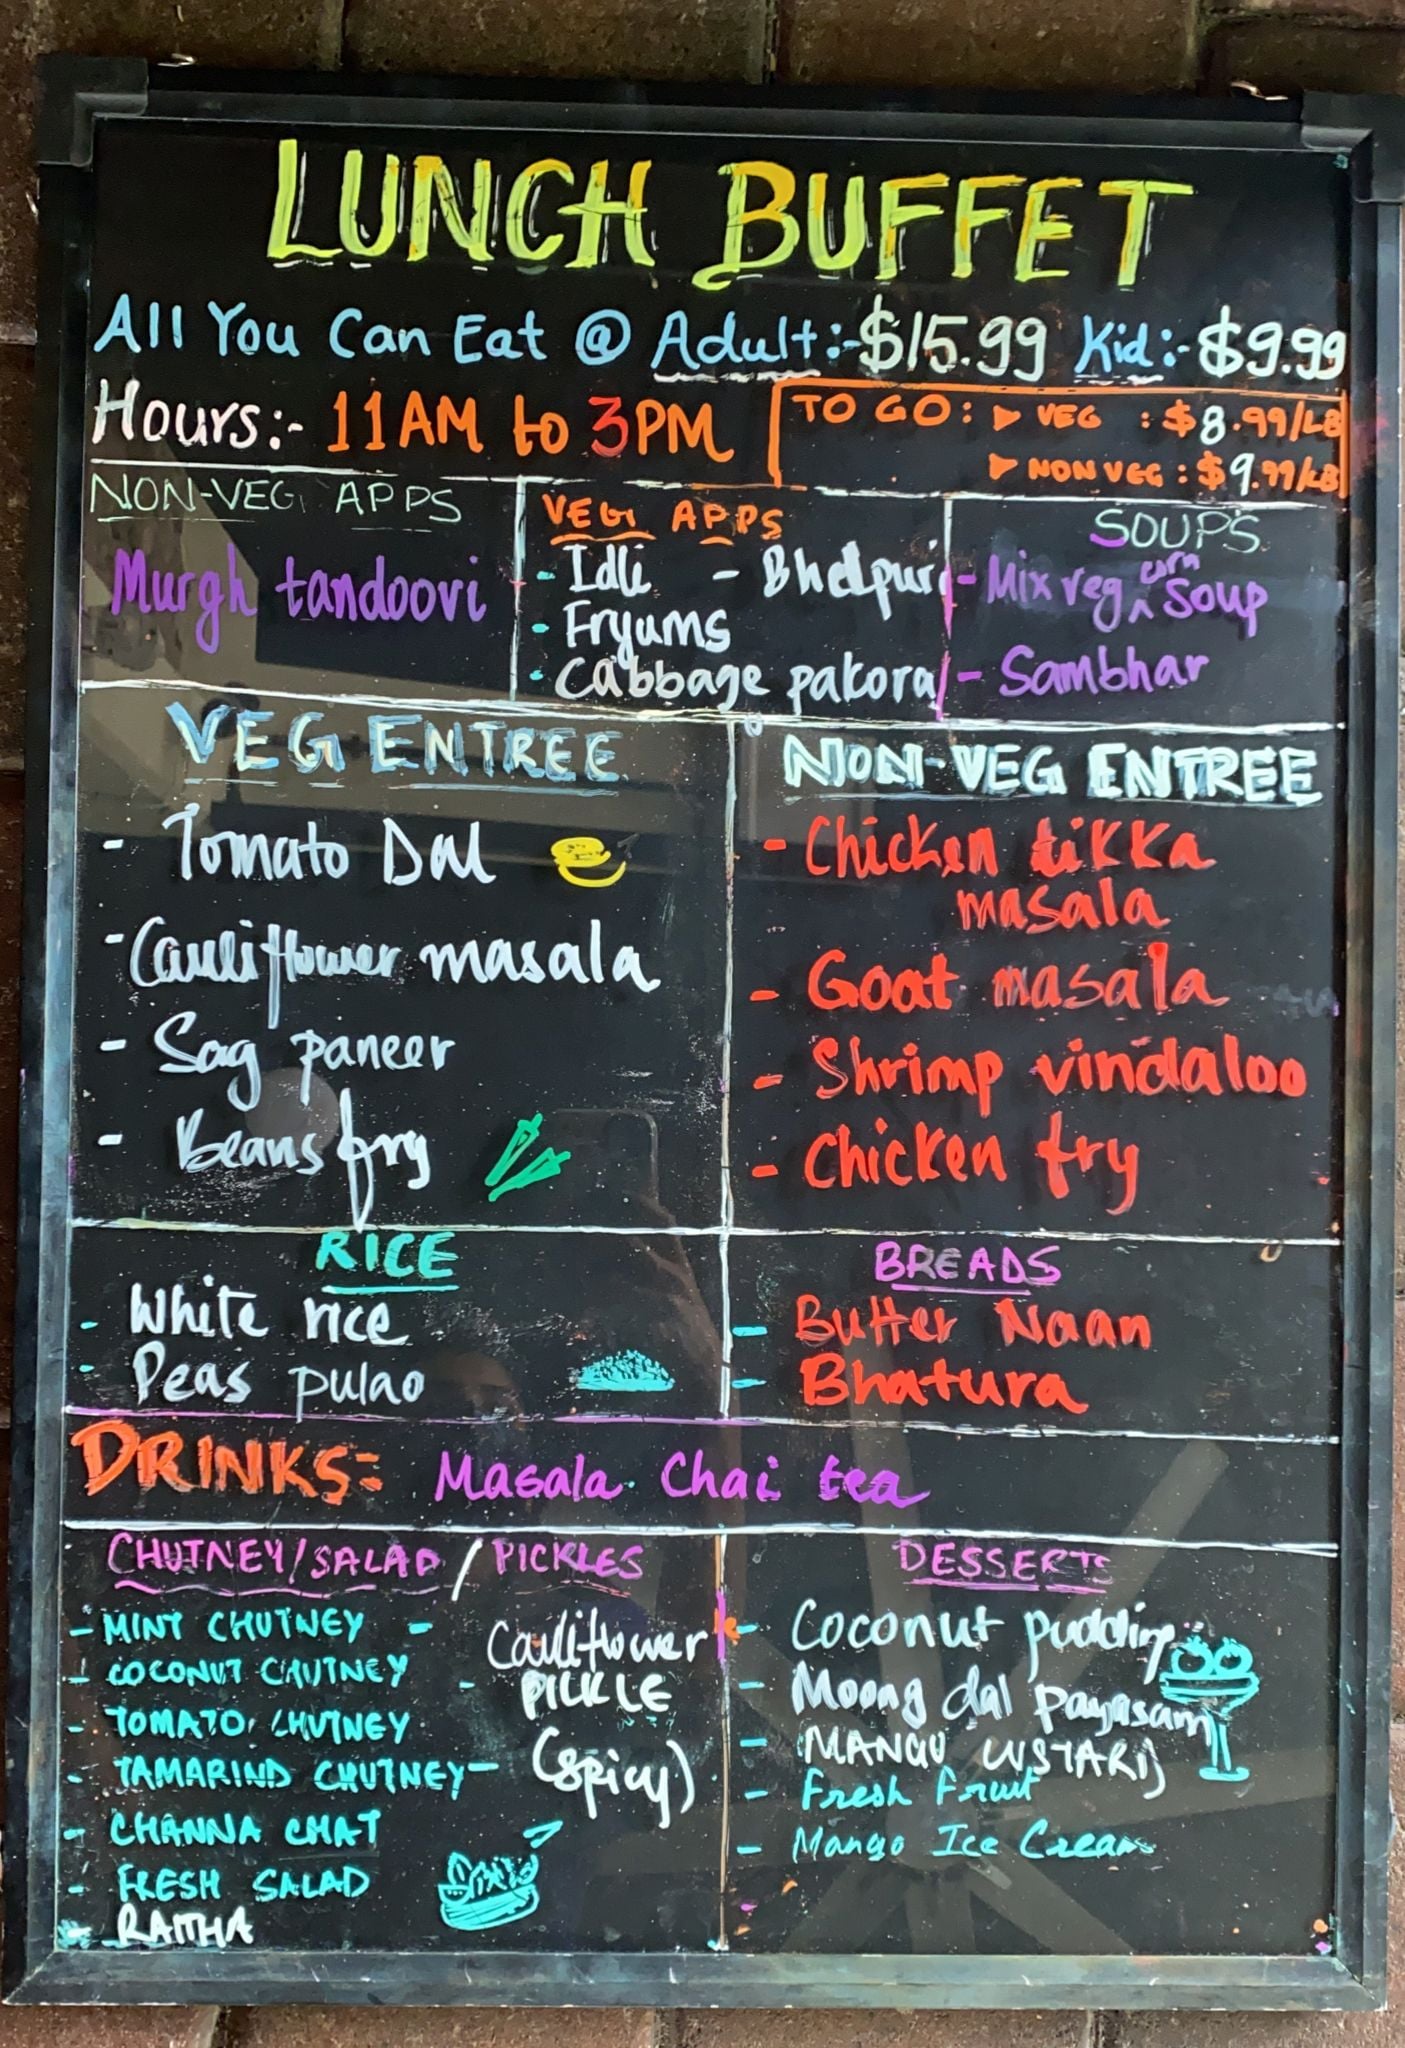 LUNCH BUFFET
All You Can Eat @ Adult:-$15.99 Kid:-$9.99
Hours:- 11AM to 3PM
TO GO: ► VEG : $8.99/LB
► NON VEG : $9.99/LB
NON-VEG APPS
Murgh tandoori
VEG APPS
- Idli - Bhelpuri
- Fryums
- Cabbage pakora
SOUPS
- Mix veg corn Soup
- Sambhar
VEG ENTREE
- Tomato Dal
- Cauliflower masala
- Sag paneer
- Beans fry
NON-VEG ENTREE
- Chicken tikka
masala
- Goat masala
- Shrimp vindaloo
- Chicken fry
RICE
- White rice
- Peas pulao
BREADS
- Butter Naan
- Bhatura
DRINKS:- Masala Chai tea
CHUTNEY/SALAD/PICKLES
- MINT CHUTNEY
- COCONUT CHUTNEY
- TOMATO CHUTNEY
- TAMARIND CHUTNEY
- CHANNA CHAT
- FRESH SALAD
- RAITHA
- Cauliflower
- PICKLE
- (spicy)
DESSERTS
- Coconut pudding
- Moong dal payasam
- MANGO CUSTARD
- Fresh Fruit
- Mango Ice Cream